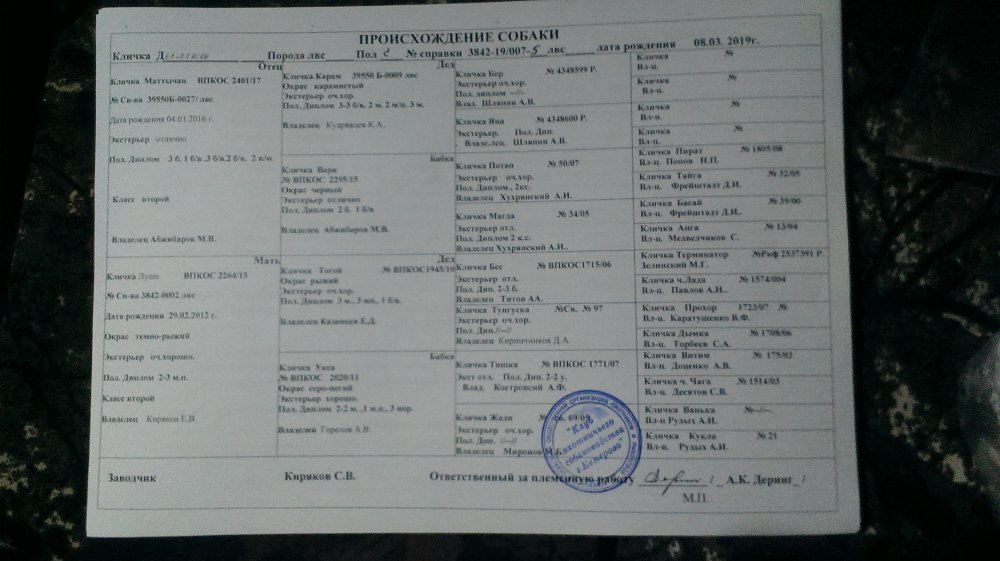 ПРОИСХОЖДЕНИЕ СОБАКИ
Кличка Димка Порода лвс Пол № справки 3842-19/007-5 лвс дата рождения 08.03. 2019г.
Отец
Кличка Маттычан ВПКОС 2401/17
№ Св-ва 39550Б-0027/ лвс
Дата рождения 04.01.2016 г.
Экстерьер отлично
Пол. Диплом 3 б. 1 б/в .3 б/в.2 б/в. 2 в/м.
Класс второй
Владелец Абжибаров М.В.
Мать
Кличка Душа ВПКОС 2264/15
№ Св-ва 3842-0002 лвс
Дата рождения 29.02.2012 г.
Окрас темно-рыжий
Экстерьер оч.хорошо.
Пол. Диплом 2-3 м.п.
Класс второй
Владелец Киряков Е.В.
Дед
Кличка Карам 39550 Б-0009 лвс
Окрас карамистый
Экстерьер оч.хор.
Пол. Диплом 3-3 б/в. 2 м. 2 м/п. 3 м.
Владелец Кудрявцев К.А.,
Бабка
Кличка Варя
№ ВПКОС 2295/15
Окрас черный
Экстерьер отлично
Пол. Диплом 2 б. 1 б/в
Владелец Абжибаров М.В.
Дед
Кличка Тогой № ВПКОС1945/10
Окрас рыжий
Экстерьер оч.хор.
Пол. Диплом 3 м., 3 мп., 1 б/в.
Владелец Казанцев Е.Д.
Бабка
Кличка Укса
№ ВПКОС 2020/11
Окрас серо-пегий
Экстерьер хорошо.
Пол. Диплом 2-2 м. ,1 м.п., 3 нор.
Владелец Горелов А.В.
Кличка Бор № 4348599 Р.
Экстерьер оч.хор.
Пол. диплом --//--
Влад. Шляпин А.В.
Кличка Яна № 4348600 Р.
Экстерьер. Пол. Дип.
. Владелец. Шляпин А.В.
Кличка Потап № 50/07
Экстерьер оч.хор.
Пол. Диплом., 2кс.
Владелец Хухрянский А.И.
Кличка Магда № 34/05
Экстерьер отл.
Пол. Диплом 2 к.с.
Владелец Хухрянский А.И..
Кличка Бес № ВПКОС1715/06
Экстерьер отл.
Пол. Дип. 2-3 б.
Владелец Титов АА.
Кличка Тунгуска №Св. № 97
Экстерьер оч.хор.
Пол. Дип.//--//
Владелец Кирпичников Д.А.
Кличка Тишка № ВПКОС 1771/07
Экст отл. Пол. Дип. 2-2 у.
Влад. Костровский А.Ф.
Кличка Жади св. 69/05
Экстерьер оч.хор.
Пол. Дип. //--//
Владелец Миронов М.К
Кличка №
Вл-ц.
Кличка №
Вл-ц.
Кличка №
Вл-ц.
Кличка №
Вл-ц.
Кличка Пират № 1805/08
Вл-ц. Попов Н.П.
Кличка Тайга № 32/05
Вл-ц. Фрейштадт Д.И.
Кличка Басай № 39/00
Вл-ц. Фрейштадт Д.И..
Кличка Анга № 13/04
Вл-ц. Медведчиков С.
Кличка Терминатор №Ркф 2537391 Р
Зелинский М.Г.
Кличка ч.Лада № 1574/004
Вл-ц. Павлов А.Н..
Кличка Прохор 1723/07 №
Вл-ц. Каратушенко В.Ф.
Кличка Дымка № 1708/06
Вл-ц. Торбеев С.А.
Кличка Витим № 175/03
Вл-ц. Доценко А.В.
Кличка ч. Чага № 1514/03
Вл-ц. Десятов С.В.
Кличка Ванька №--//--,
Вл-ц Рудых А.И.
Кличка Кукла № 21
Вл-ц. Рудых А.И.
"Клуб
охотничьего
собаководства
г.Кемерово"
Заводчик Киряков С.В. Ответственный за племенную работу / А.К. Деринг /
М.П.